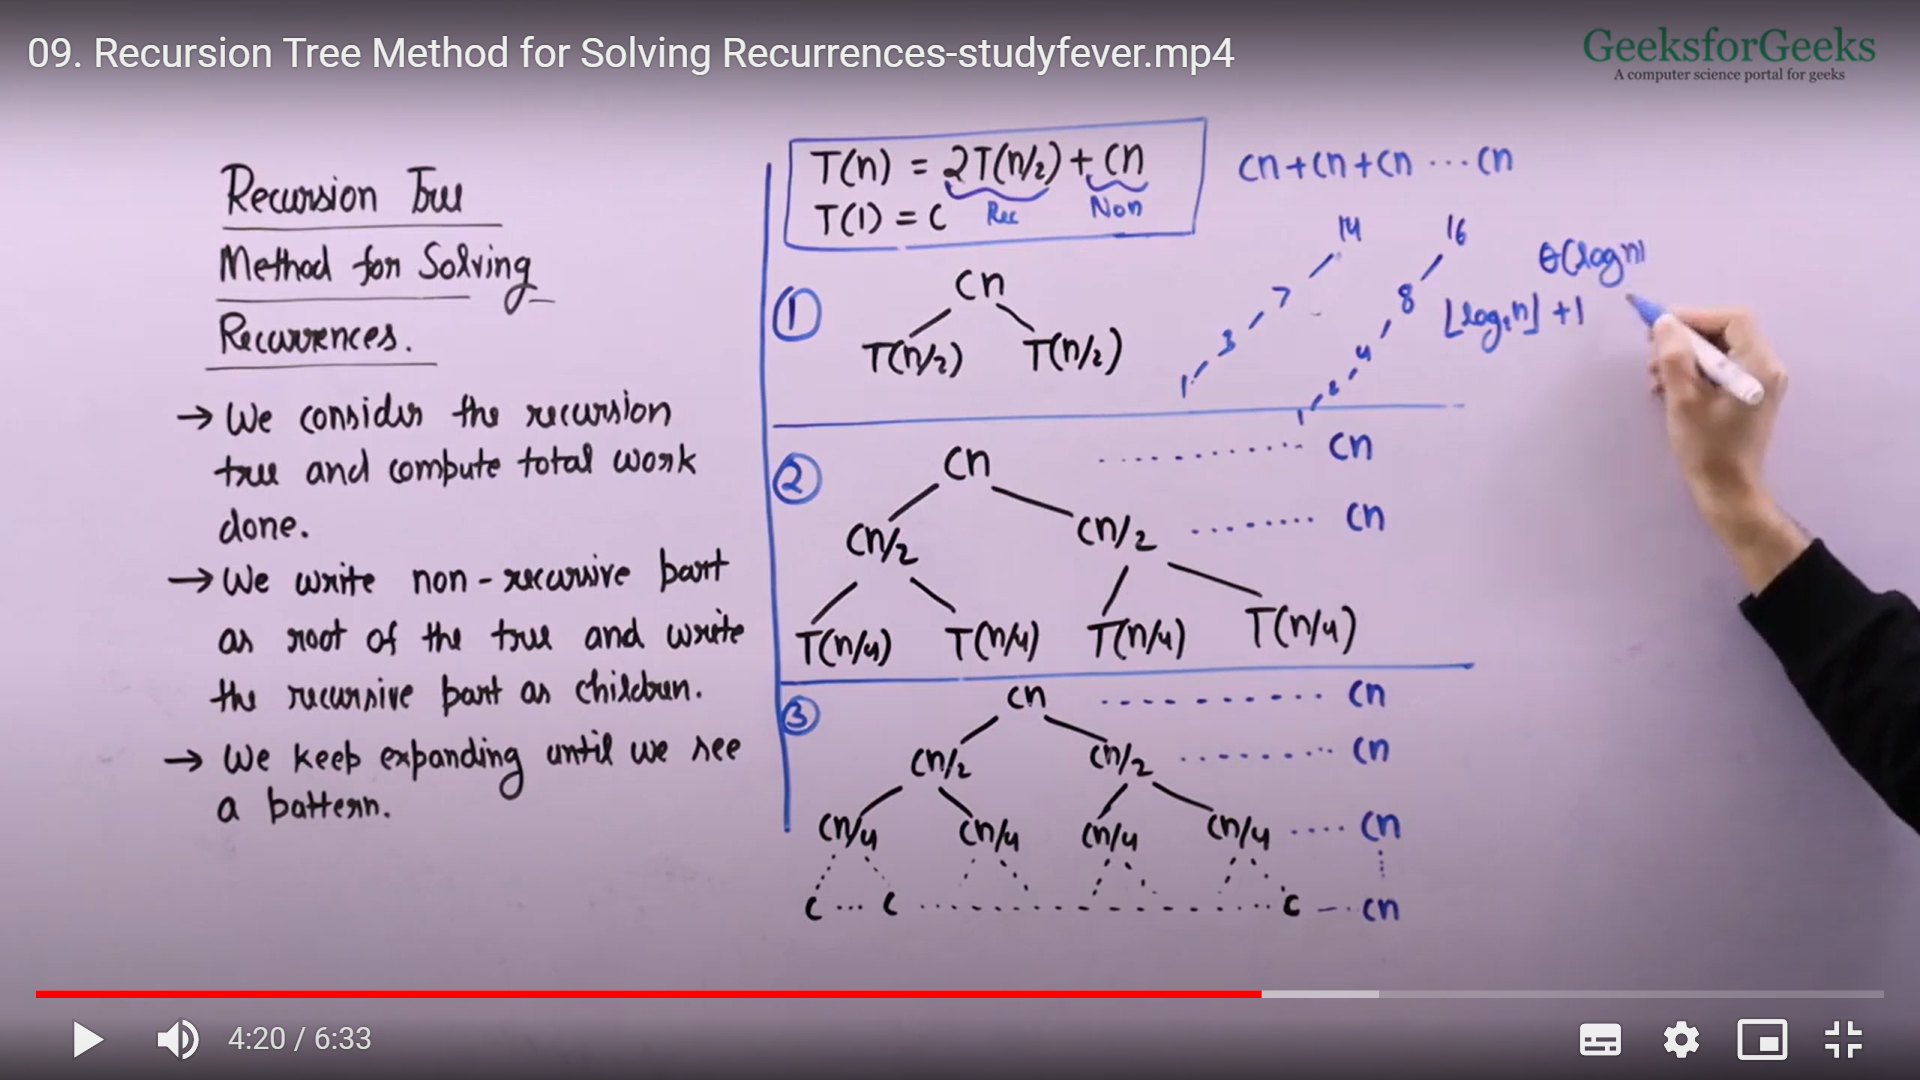 09. Recursion Tree Method for Solving Recurrences-studyfever.mp4
GeeksforGeeks
A computer science portal for geeks
Recursion Tree
Method for Solving
Recurrences.
→ We consider the recursion
tree and compute total work
done.
→ We write non-recursive part
as root of the tree and write
the recursive part as children.
→ We keep expanding until we see
a pattern.
T(n) = 2T(n/2) + cn
T(1) = C
Rec
Non
cn + cn + cn ... cn
14
7
3
1
16
8
4
2
1
θ(log n)
⌊log₂n⌋ + 1
①
cn
T(n/2) T(n/2)
②
cn .......... cn
cn/2 cn/2 ........ cn
T(n/4) T(n/4) T(n/4) T(n/4)
③
cn .......... cn
cn/2 cn/2 ........ cn
cn/4 cn/4 cn/4 cn/4 .... cn
c ... c .......... c --- cn
4:20 / 6:33